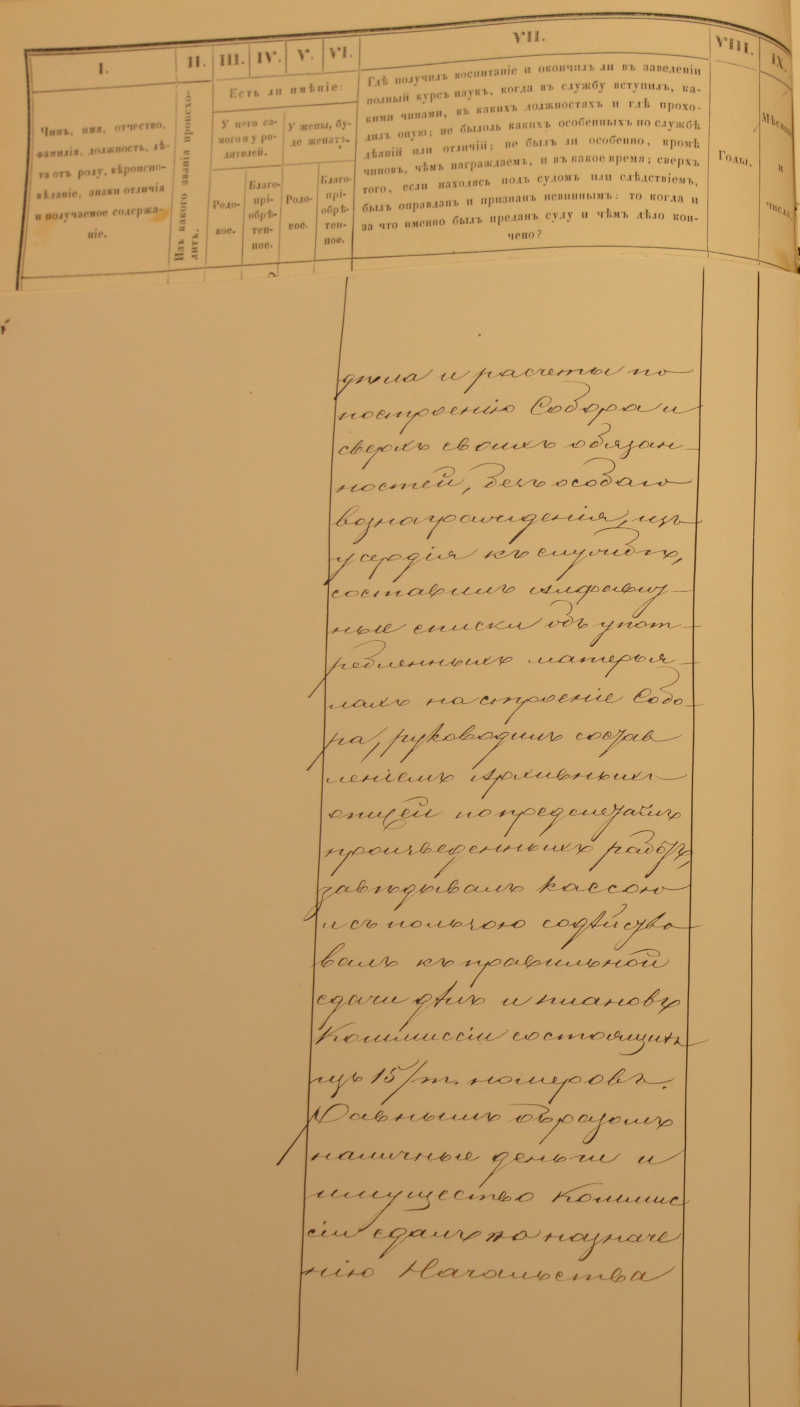 I.
II.
III.
IV.
V.
VI.
VII.
VIII.
IX.
Чинъ, имя, отчество,
фамилія, должность, лѣ-
та отъ роду, вѣроиспо-
вѣданіе, знаки отличія
и получаемое содержа-
ніе.
Изъ какого званія происхо-
дитъ.
Есть ли имѣніе:
У него са-
мого и у ро-
дителей.
У жены, бу-
де женатъ.
Родо-
вое.
Благо-
прі-
обрѣ-
тен-
ное.
Родо-
вое.
Благо-
прі-
обрѣ-
тен-
ное.
Гдѣ получилъ воспитаніе и окончилъ ли въ заведеніи
полный курсъ наукъ, когда въ службу вступилъ, ка-
кими чинами, въ какихъ должностяхъ и гдѣ прохо-
дилъ оную; не былоль какихъ особенныхъ по службѣ
дѣяній или отличій; не былъ ли особенно, кромѣ
чиновъ, чѣмъ награждаемъ, и въ какое время; сверхъ
того, если находясь подъ судомъ или слѣдствіемъ,
былъ оправданъ и признанъ невиннымъ: то когда и
за что именно былъ преданъ суду и чѣмъ дѣло кон-
чено?
Годы.
Мѣсяцы
и
числа.
и расчеты по
построенію Собора и
сверхъ своихъ обязан
ностей, безъ особаго
вознагражденія, изъ
усердія къ службѣ,
составилъ
ные списки объ упот
ребленныхъ матерья
лахъ на строеніе Собо
ра, руководилъ состав
леніемъ архивныхъ
описей по предметамъ
произведенныхъ работъ,
завѣдывалъ кассою
и съ пользою содѣйство
валъ къ правильной
сдачи дѣлъ и плановъ
Коммиссіи состоящихъ
изъ 15/т. номеровъ.
Равнымъ образомъ
наличные деньги и
имущество Коммис
сіи сдалъ по назначе
нію Начальства